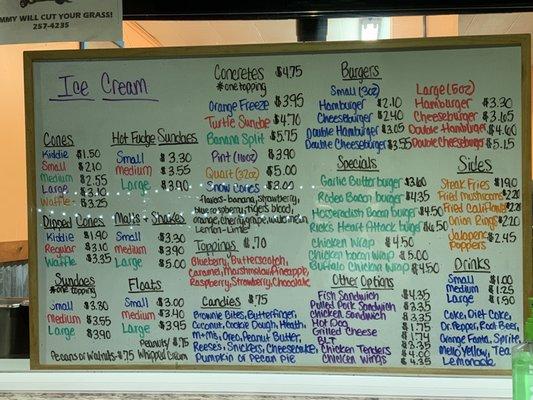 MMY WILL CUT YOUR GRASS!
257-4235
Ice Cream
Cones
Kiddie $1.50
Small $2.10
Medium $2.55
Large $3.10
Waffle $3.25
Dipped Cones
Kiddie $1.90
Regular $3.10
Waffle $3.35
Sundaes
*one topping
Small $3.30
Medium $3.55
Large $3.90
Pecans or Walnuts-$.75
Hot Fudge Sundaes
Small $3.30
Medium $3.55
Large $3.90
Malts + Shakes
Small $3.30
Medium $3.90
Large $5.00
Floats
Small $3.00
Medium $3.40
Large $3.95
Peanuts $.75
Whipped Cream
Concretes $4.75
*one topping
Orange Freeze $3.95
Turtle Sundae $4.70
Banana Split $5.75
Pint (16oz) $3.90
Quart (32oz) $5.00
Snow Cones $3.00
flavors - banana, strawberry,
blue raspberry, tigers blood,
orange, cherry, grape, watermelon
Lemon-Lime
Toppings $.70
Blueberry, Butterscotch,
Caramel, Marshmallow, Pineapple
Raspberry, Strawberry, Chocolate
Candies $.75
Brownie Bites, Butterfinger,
Coconut, Cookie Dough, Heath,
M+Ms, Oreo, Peanut Butter,
Reeses, Snickers, Cheesecake,
Pumpkin or Pecan Pie
Burgers
Small (3oz)
Hamburger $2.10
Cheeseburger $2.40
Double Hamburger $3.05
Double Cheeseburger $3.55
Large (5oz)
Hamburger $3.30
Cheeseburger $3.65
Double Hamburger $4.60
Double Cheeseburger $5.15
Specials
Garlic Butter burger $3.60
Rodeo Bacon burger $4.35
Horseradish Bacon burger $4.50
Rick's Heart Attack burger $6.50
Chicken Wrap $4.50
Chicken Bacon Wrap $5.00
Buffalo Chicken Wrap $4.50
Other Options
Fish Sandwich $4.35
Pulled Pork Sandwich $3.35
Chicken Sandwich $3.35
Hot Dog $1.75
Grilled Cheese $1.74
BLT $3.35
Chicken Tenders $4.00
Chicken Wings $4.35
Sides
Steak Fries $1.90
Fried Mushrooms $2.20
Fried Califlower $2.20
Onion Rings $2.20
Jalapeno
Poppers $2.45
Drinks
Small $1.00
Medium $1.25
Large $1.50
Coke, Diet Coke,
Dr. Pepper, Root Beer,
Orange Fanta, Sprite,
Mello Yellow, Tea,
Lemonade